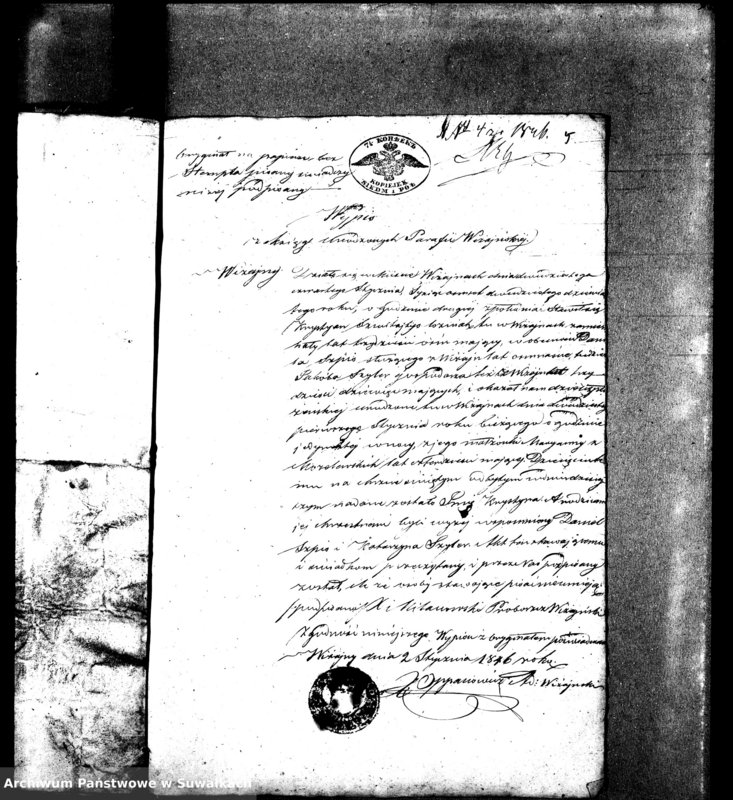 № 4 1846. 5
7½ КОПѢЕКЪ
KOPIEJEK
SIEDM I PÓŁ
Oryginał na papierze bez
Stempla pisany
niżej podpisany
Wypis
z Ksiąg Urodzonych Parafii Wiżajńskiej
Wiżajny Działo się w Mieście Wiżajnach dnia dwudziestego
czwartego Stycznia tysiąc osmset dwudziestego dziewią
tego roku, o godzinie drugiej z południa Stawił się
Krystyan w Wiżajnach zamiesz
kały, lat trzydzieści ośm mający, w obecności Dani
la Szpis starszego z Wiżajn lat osmnaście, tudzież
Jakóba Szyler gospodarza też z Wiżajn lat trzy
dzieści dziewięć mających, i okazał nam dziecię płci
żeńskiej urodzone tu w Wiżajnach dnia dwudziestego
pierwszego Stycznia roku bieżącego o godzinie
w nocy, z jego małżonki Maryanny z
lat mającej. Dziecięciu te
mu na chrzcie świętym odbytym w dniu dzisiej
szym nadane zostało Imię Krystyna a rodzicami
jej chrzestnemi byli wyżej wspomniony Daniel
Szpis i Katarzyna Szyler. Akt ten stawającemu
i świadkom przeczytany, i przez Nas podpisany
został, ile że osoby stawające pisać nieumieją
(podpisano) X Proboszcz Wiżajński
Zgodność niniejszego Wypisu z oryginałem poświadcza
Wiżajny dnia 2 Stycznia 1846 roku.
Wiżajnska
Archiwum Państwowe w Suwałkach